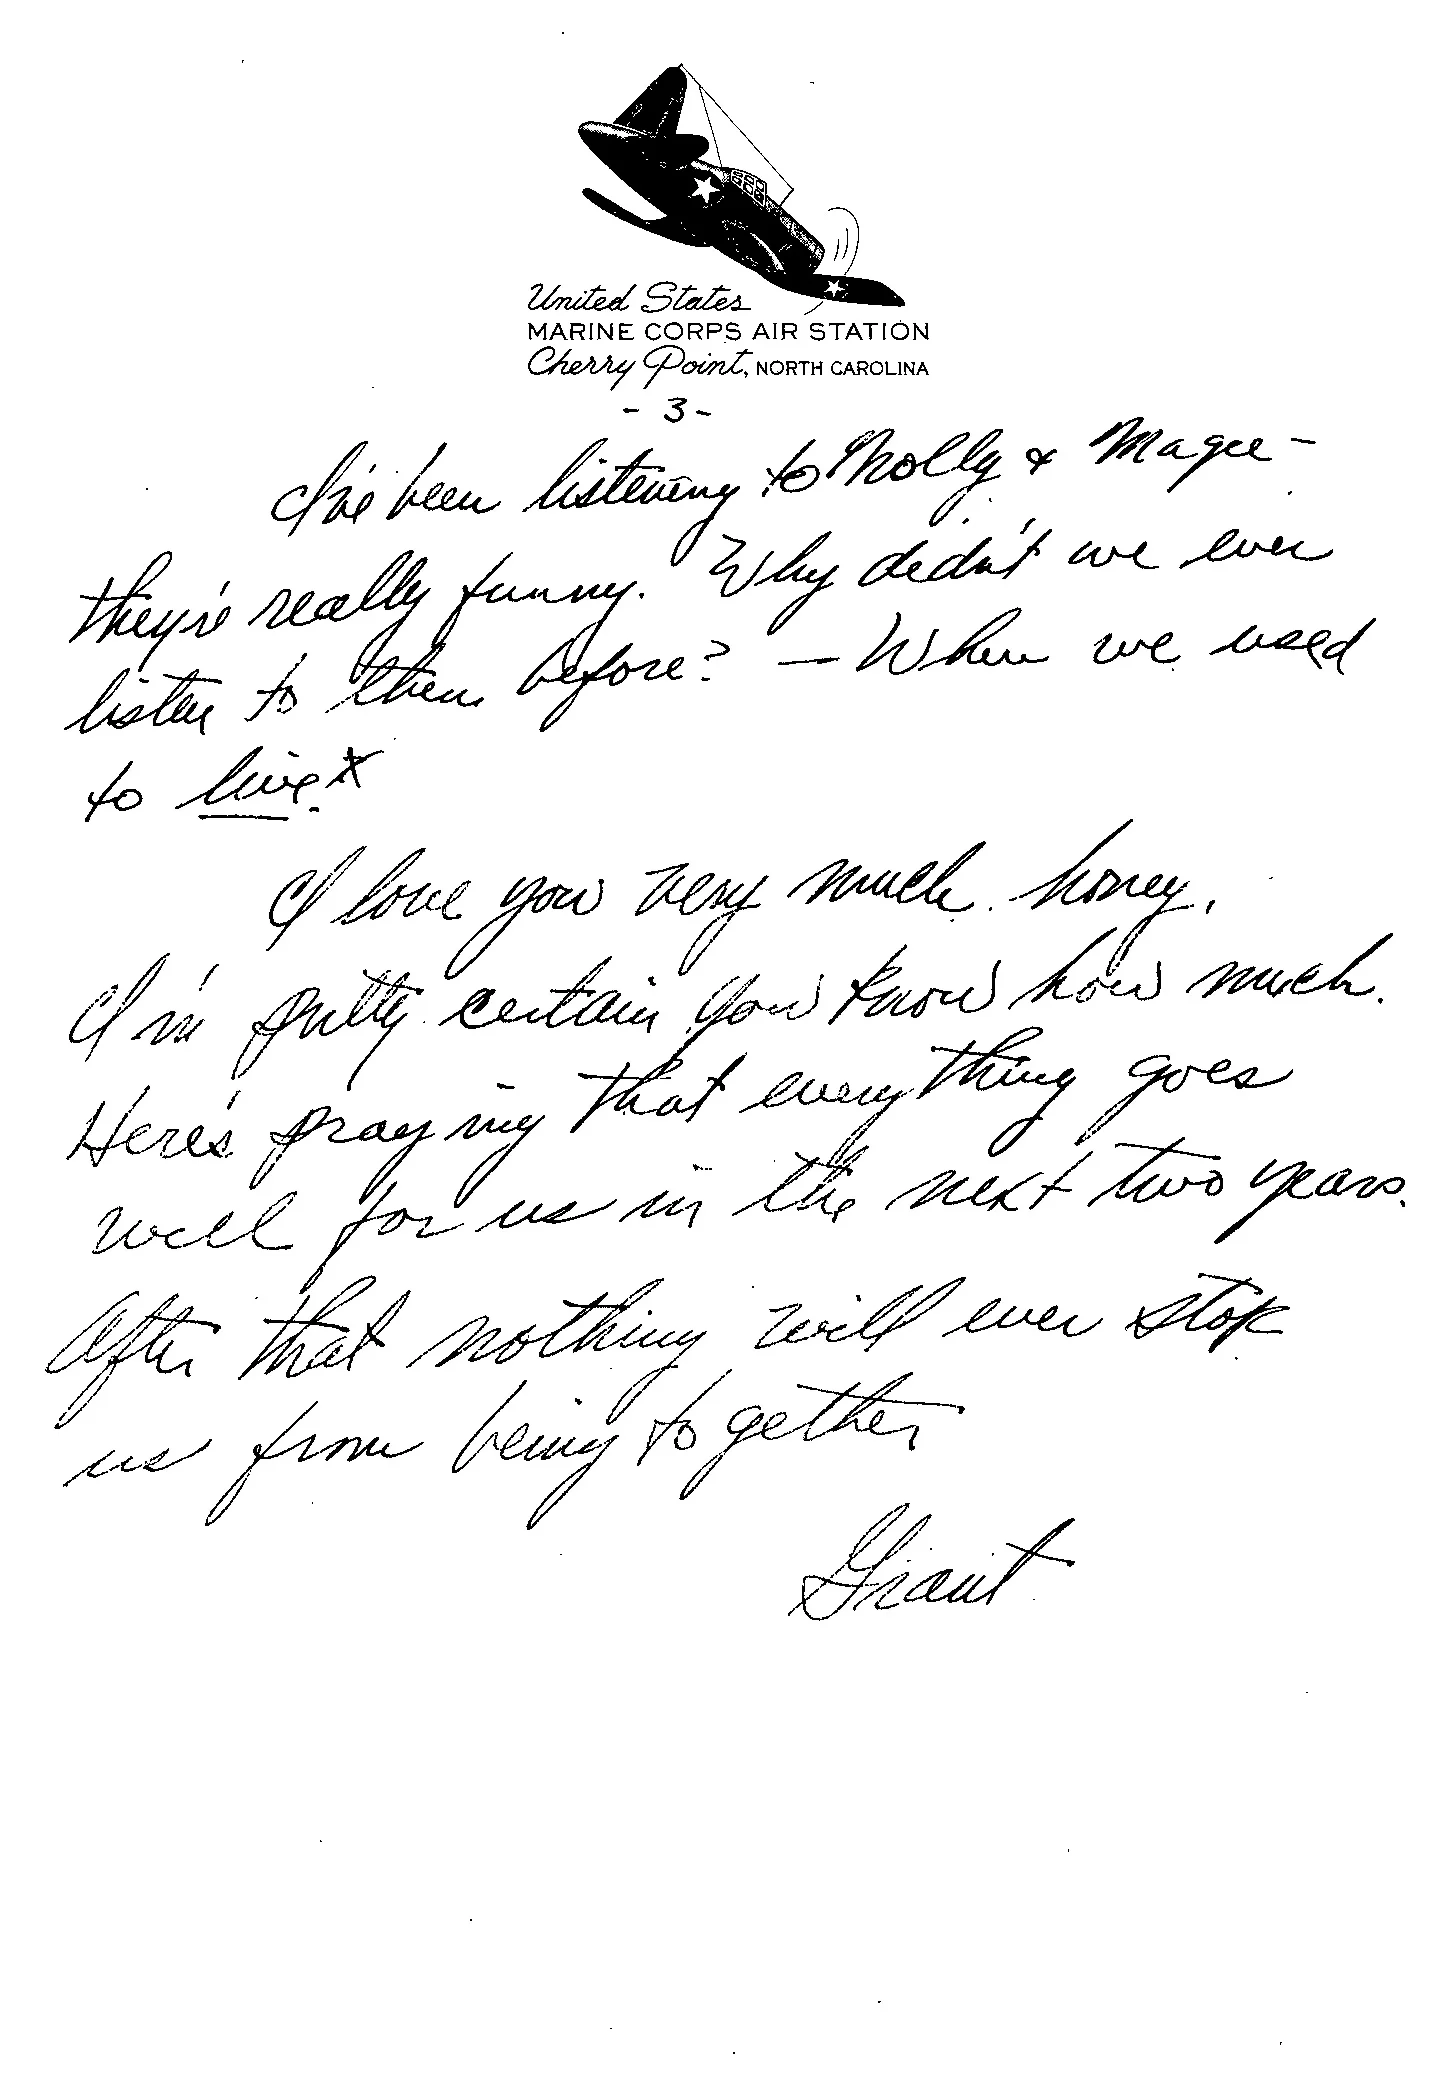 United States
MARINE CORPS AIR STATION
Cherry Point, NORTH CAROLINA
- 3 -
I've been listening to Molly & Magee -
they're really funny. Why didn't we ever
listen to them before? — When we used
to live.*
I love you very much honey.
I'm pretty certain you know how much.
Here's praying that everything goes
well for us in the next two years.
After that nothing will ever stop
us from being together
Grant